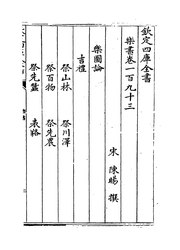 欽定四庫全書
樂書卷一百九十三
宋　陳暘　撰
樂圖論
吉禮
祭山林　祭川澤
祭百物　祭先農
祭先蠶　表貉